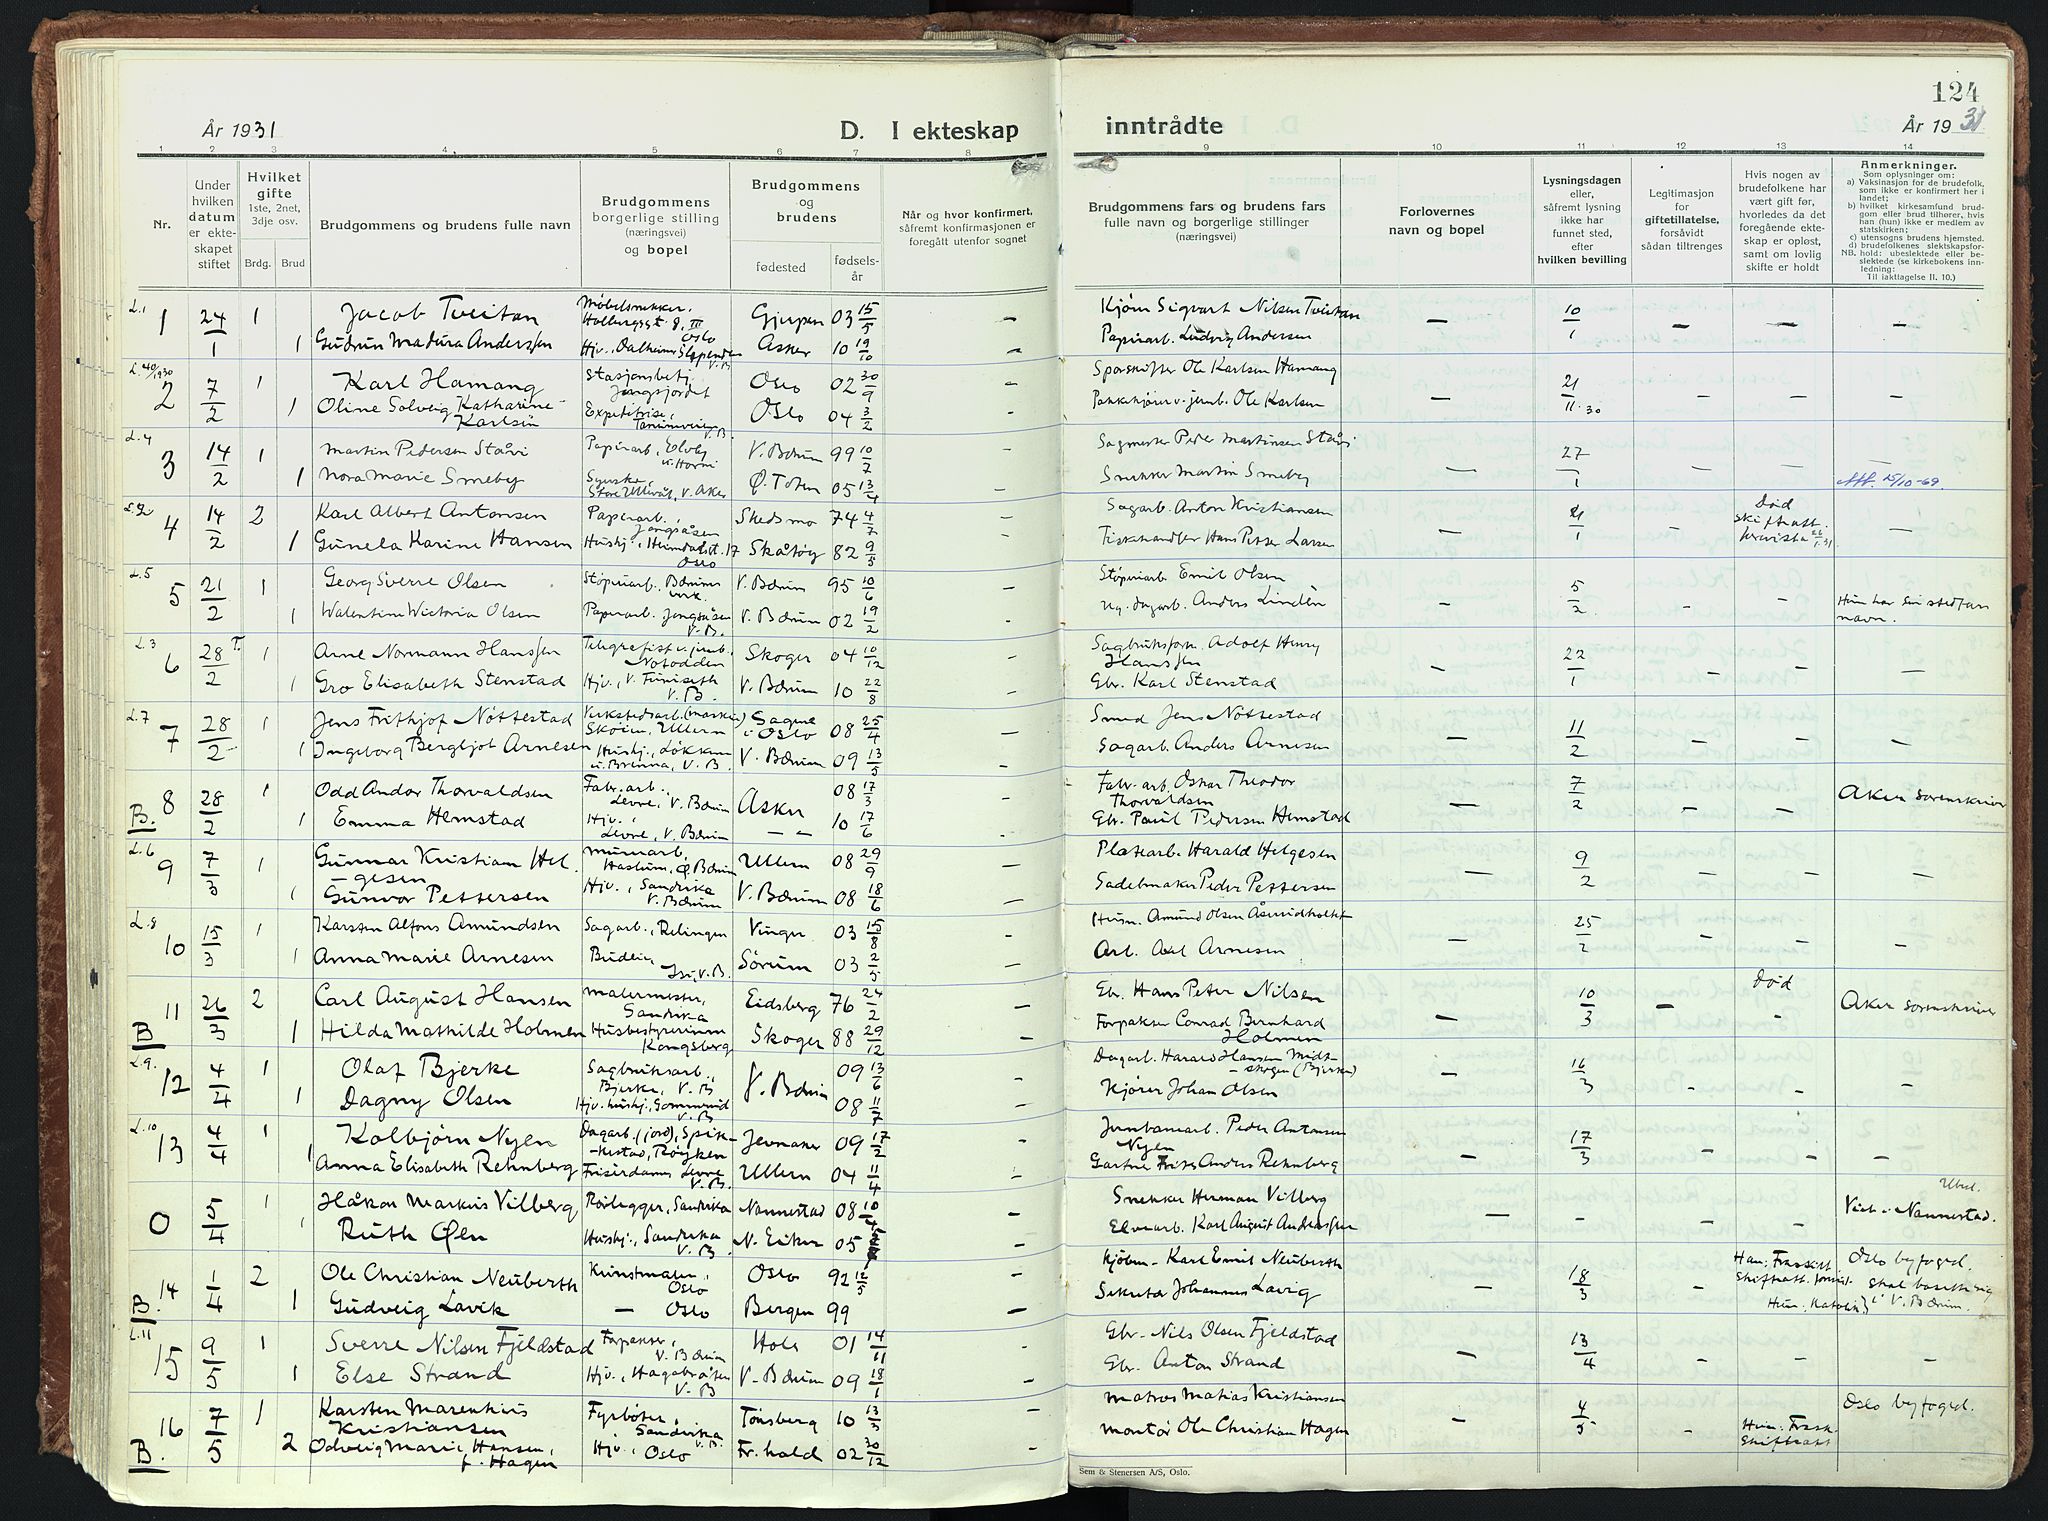 124
År 1931
D. I ekteskap
inntrådte
År 1931
1 2 3 4 5 6 7 8 9 10 11 12 13 14
Nr.
Under hvilken datum er ekteskapet stiftet
Hvilket gifte
1ste, 2net, 3dje osv.
Brdg. Brud
Brudgommens og brudens fulle navn
Brudgommens borgerlige stilling (næringsvei) og bopel
Brudgommens og brudens
fødested
fødselsår
Når og hvor konfirmert, såfremt konfirmasjonen er foregått utenfor sognet
Brudgommens fars og brudens fars fulle navn og borgerlige stillinger (næringsvei)
Forlovernes navn og bopel
Lysningsdagen eller, såfremt lysning ikke har funnet sted, efter hvilken bevilling
Legitimasjon for giftetillatelse, forsåvidt sådan tiltrenges
Hvis nogen av brudefolkene har vært gift før, hvorledes da det foregående ekteskap er opløst, samt om lovlig skifte er holdt
Anmerkninger.
Som oplysninger om:
a) Vaksinasjon for de brudefolk, som ikke er konfirmert her i landet;
b) hvilket kirkesamfund brudgom eller brud tilhører, hvis han (hun) ikke er medlem av statskirken;
c) utensogns brudens hjemsted.
d) brudefolkenes slektskapsforhold: ubeslektede eller beslektede (se kirkebokens innledning:
NB. Til iakttagelse II. 10.)
L.1 1 24/1 1 Jacob Tveitan Møbelsnekker, Holbergsgt. 8, III Oslo Gjerpen 03 15/5 – Kjørn Sigvart Nilsen Tveitan – 10/1 – – –
1 Gudrun Madura Anderssen Hjv., Dalheim, Slependen V.B Asker 10 19/10 – Papirarb. Ludvig Andersen
L. 40/1930 2 7/2 1 Karl Hamang Stasjonsbetj. Jongsjordet Oslo 02 30/9 – Sporskifter Ole Karlsen Hamang 21/11.30
1 Oline Solveig Katharine Karlsen Oslo 04 3/2 – Ole Karlsen – – – –
L.4 3 14/2 1 Martin Pedersen Ståvi Papirarb. V. Bærum 99 10/7 Sagmester Peder Martinsen Ståvi 27/1
1 Nora Marie Smeby Store Ullevål, V. Aker Ø. Toten 05 13/4 – Snekker Martin Smeby – – – 15/10-69.
L.2 4 14/2 2 Karl Albert Antonsen Papirarb., Jongsåsen Skedsmo 74 4/7 – Sagarb. Anton Kristiansen 21/1 Død
1 Gunela Karine Hansen Hushj., Heimdalsgt. 17 Oslo Skåtøy 82 9/5 – Fiskehandler Hans Petter Larsen – – –
L.5 5 21/2 1 Georg Sverre Olsen Støperiarb. Bærums verk. V. Bærum 95 10/6 – Støperiarb. Emil Olsen 5/2
1 Walentine Wictoria Olsen Papirarb. Jongsåsen V.B. V. Bærum 02 19/2 Anders Lindén – – – Hun har sin stedfars navn.
L.3 6 28/2 1 Arne Normann Hanssen Telegrafist v. jernb. Notodden Skoger 04 10/12 – Sagbruksform. Adolf Henry Hanssen 22/1
1 Gro Elisabeth Stenstad Hjv., V. V.B. V. Bærum 10 22/8 – Gbr. Karl Stenstad – – – –
L.7 7 28/2 1 Jens Frithjof Nøttestad Verkstedsarb. Skøien, Ullern Sagene i Oslo 08 25/4 – Smed Jens Nøttestad 11/2
1 Ingeborg Bergljot Arnesen Hushj., Løkkum V.B. V. Bærum 09 13/5 Sagarb. Anders Arnesen – – – –
B. 8 28/2 1 Odd Andor Thorvaldsen Fabr. arb. Levre, V. Bærum Asker 08 17/3 – Fabr. arb. Oskar Theodor Thorvaldsen 7/2 Aker sorenskriver
1 Emma Hemstad Hjv., Levre, V. Bærum – „ – 10 17/6 Gbr. Paul Pedersen Hemstad – – –
L.6 9 7/3 1 Gunnar Kristian Helgesen Murarb. Haslum, Ø. Bærum Ullern 08 29/9 – Platearb. Harald Helgesen 9/2
1 Gunvor Pettersen Hjv., Sandvika V. Bærum V. Bærum 08 18/6 – Sadelmaker Peder Pettersen – – – –
L.8 10 15/3 1 Karsten Alfons Amundsen Sagarb., Rælingen Vinger 03 15/8 – Husm. Amund Olsen 25/2
1 Anna Marie Arnesen Budeie, V.B. Sørum 03 2/5 – Arb. Axel Arnesen – – – –
B 11 26/3 2 Carl August Hansen Malermester, Sandvika Eidsberg 76 24/2 – Gbr. Hans Peter Nilsen 10/3 – Død Aker sorenskriver
1 Hilda Mathilde Holmen Husbestyrerinne Kongsberg Skoger 88 29/12 – Forpakter Conrad Bernhard Holmen – –
L.9. 12 4/4 1 Olaf Bjerke Sagbruksarb., Bjerke, V.B V. Bærum 09 13/6 – Dagarb. Harald Hansen Midtskogen (Bjerke) 16/3
1 Dagny Olsen Hjv. hushj., V.B 08 11/7 – Kjører Johan Olsen – – – –
L.10 13 4/4 1 Kolbjørn Nylen Dagarb. (jord), Spikkestad, Røyken Jevnaker 09 17/2 – Jernbanearb. Peder Antonsen Nylen 17/3
1 Anna Elisabeth Rehnberg Frisørdame Levre V.B. Ullern 04 11/4 – Gartner Anders Rehnberg – – – –
0 5/4 1 Håkon Markus Vilberg Rørlegger, Sandvika Nannestad 08 10/ – Snekker Herman Vilberg Ubesl. Viet i Nannestad.
1 Ruth Øen Hushj., Sandvika V.B N. Eiker 05 – Karl August Andreassen – – – –
B. 14 1/4 2 Ole Christian Neuberth Kunstmaler, Oslo Oslo 92 12/5 Kjøbm. Karl Emil Neuberth 18/3 Han: Fraskilt. Oslo byfoged.
1 Gudveig Lavik – Oslo Bergen 99 – Sekretær Johannes Lavig – – Hun: Katolik skal bosette sig i V. Bærum.
L.11 15 9/5 1 Sverre Nilsen Fjeldstad Forpakter, V. Bærum Hole 01 14/11 Gbr. Nils Olsen Fjeldstad 13/4
1 Else Strand Hjv., Hagabråten V.B V. Bærum 09 18/1 – Gbr. Anton Strand – – – –
B. 16 7/5 1 Karsten Marenhius Kristiansen Fyrbøter, Sandvika V.B. Tønsberg 10 13/3 – Matros Matias Kristiansen 4/5 Oslo byfogd.
2 Odveig Marie Hansen, f. Hagen Hjv., Oslo Fr.hald 02 30/12 – Montør Ole Christian Hagen – – Hun: Frask. Skifteatt
Sem & Stenersen A/S, Oslo.